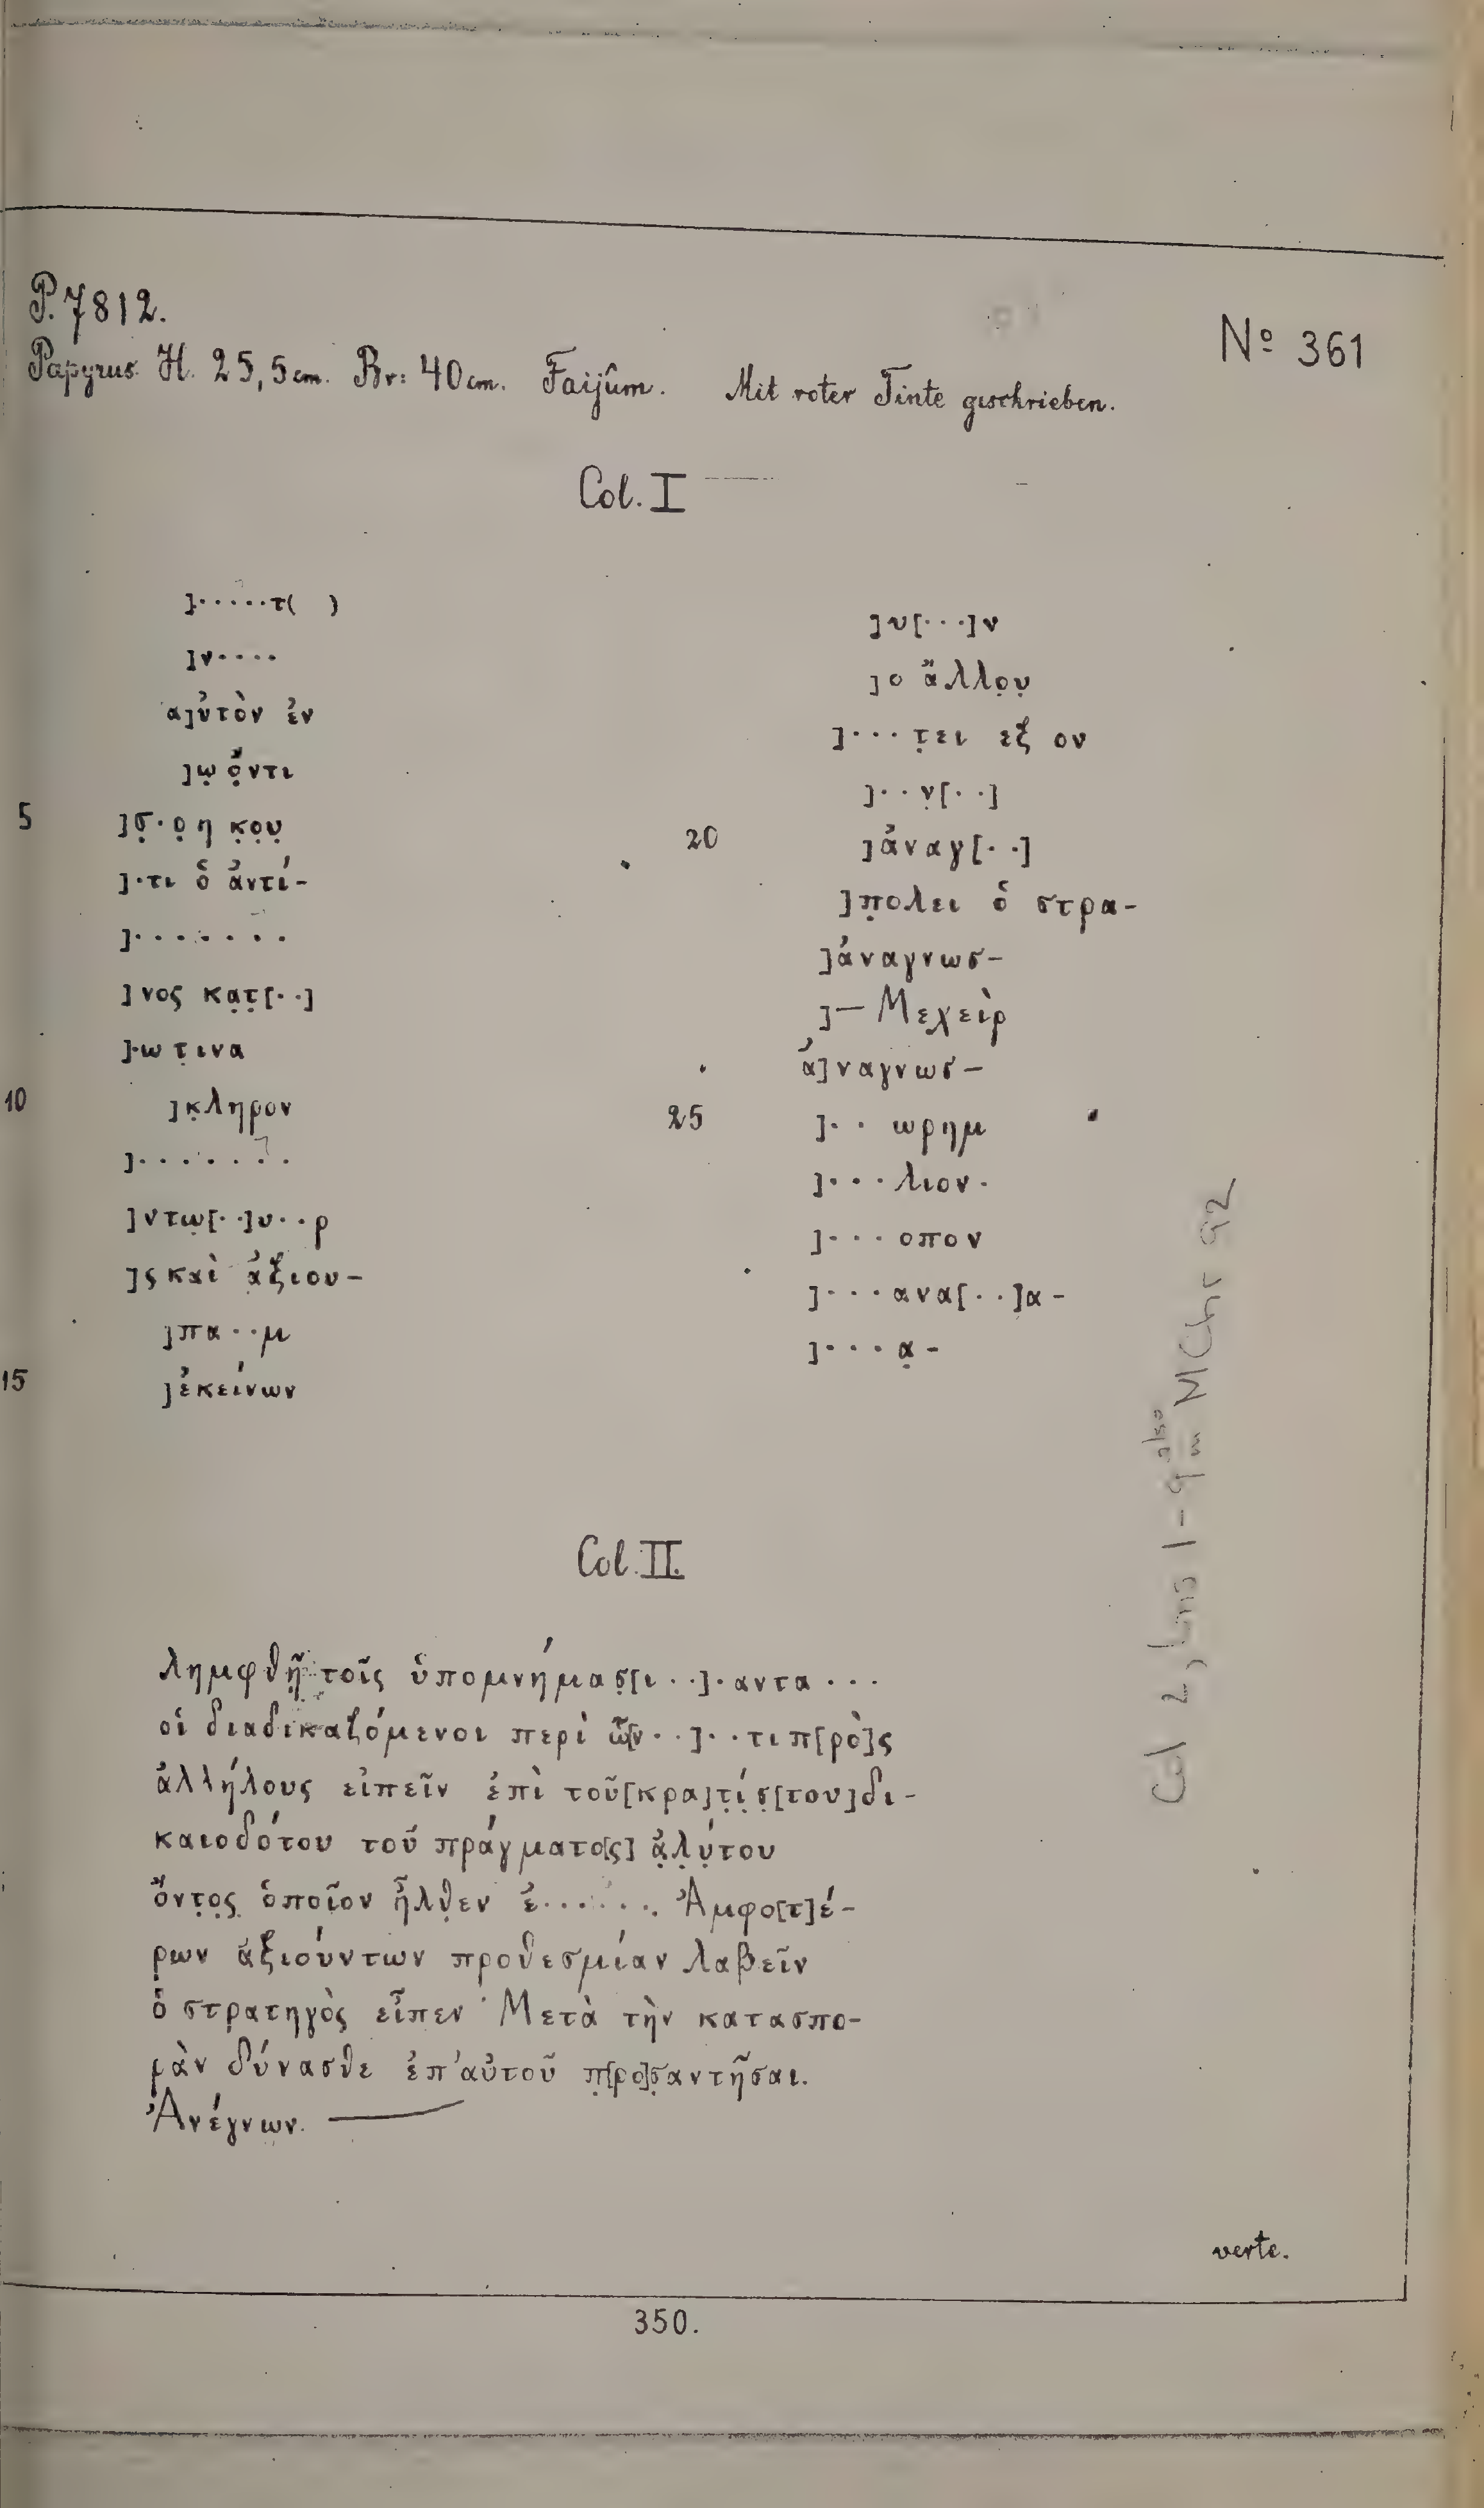 P. 7812.
Nº 361
Papyrus H. 25,5 cm. Br: 40 cm. Faijûm. Mit roter Tinte geschrieben.
Col. I
]·····τ( )
]ν····
α]ὐτὸν ἐν
]ῳ ὄ̣ντι
5 ]σ̣·ο̣ η κ̣ο̣υ̣
]·τι ὁ ἀντί-
]·······
]νος κα̣τ̣[··]
]·ω τ̣ινα
10 ]κ̣ληρον
]·······
]ντω̣[··]υ··ρ
]ς καὶ ἀξιου-
]πα··μ
15 ]ἐκείνων
]υ[···]ν
]ο ἄλλο̣υ̣
]··· τ̣ει εξ ον
]··ν̣[··]
20 ]ἀναγ[··]
]π̣ολει ὁ στρα-
]ἀναγνωσ-
]— Μεχεὶρ
ἀ]ναγνωσ-
25 ]·· ωρημ
]···λιον·
]···οπον
]···ανα[··]α-
]····α̣-
Col. II.
λημφθῇ τοῖς ὑπομνήμασ̣[ι··]·αντα···
οἱ διαδικαζόμενοι περὶ ὧ̣[ν··]··τι π[ρὸ]ς
ἀλλήλους εἰπεῖν ἐπὶ τοῦ [κρα]τ̣ί̣σ̣[του] δι-
καιοδότου τοῦ πράγματο[ς] ἀ̣λ̣ύ̣του
ὄντ̣ο̣ς̣ ὁποῖον ἦλθ̣εν ἐ······. Ἀμφο[τ]έ-
ρ̣ων ἀξιούντων προθεσμίαν λαβεῖν
ὁ στρ̣ατηγὸς εἶπεν· Μετὰ τὴν κατασπο-
ρὰν δύνασθε ἐπ' αὐτοῦ π̣[ρο]σ̣αντῆσαι.
Ἀνέγνων. —
Col 2, lines 1-9 also in MChr 92
verte.
350.